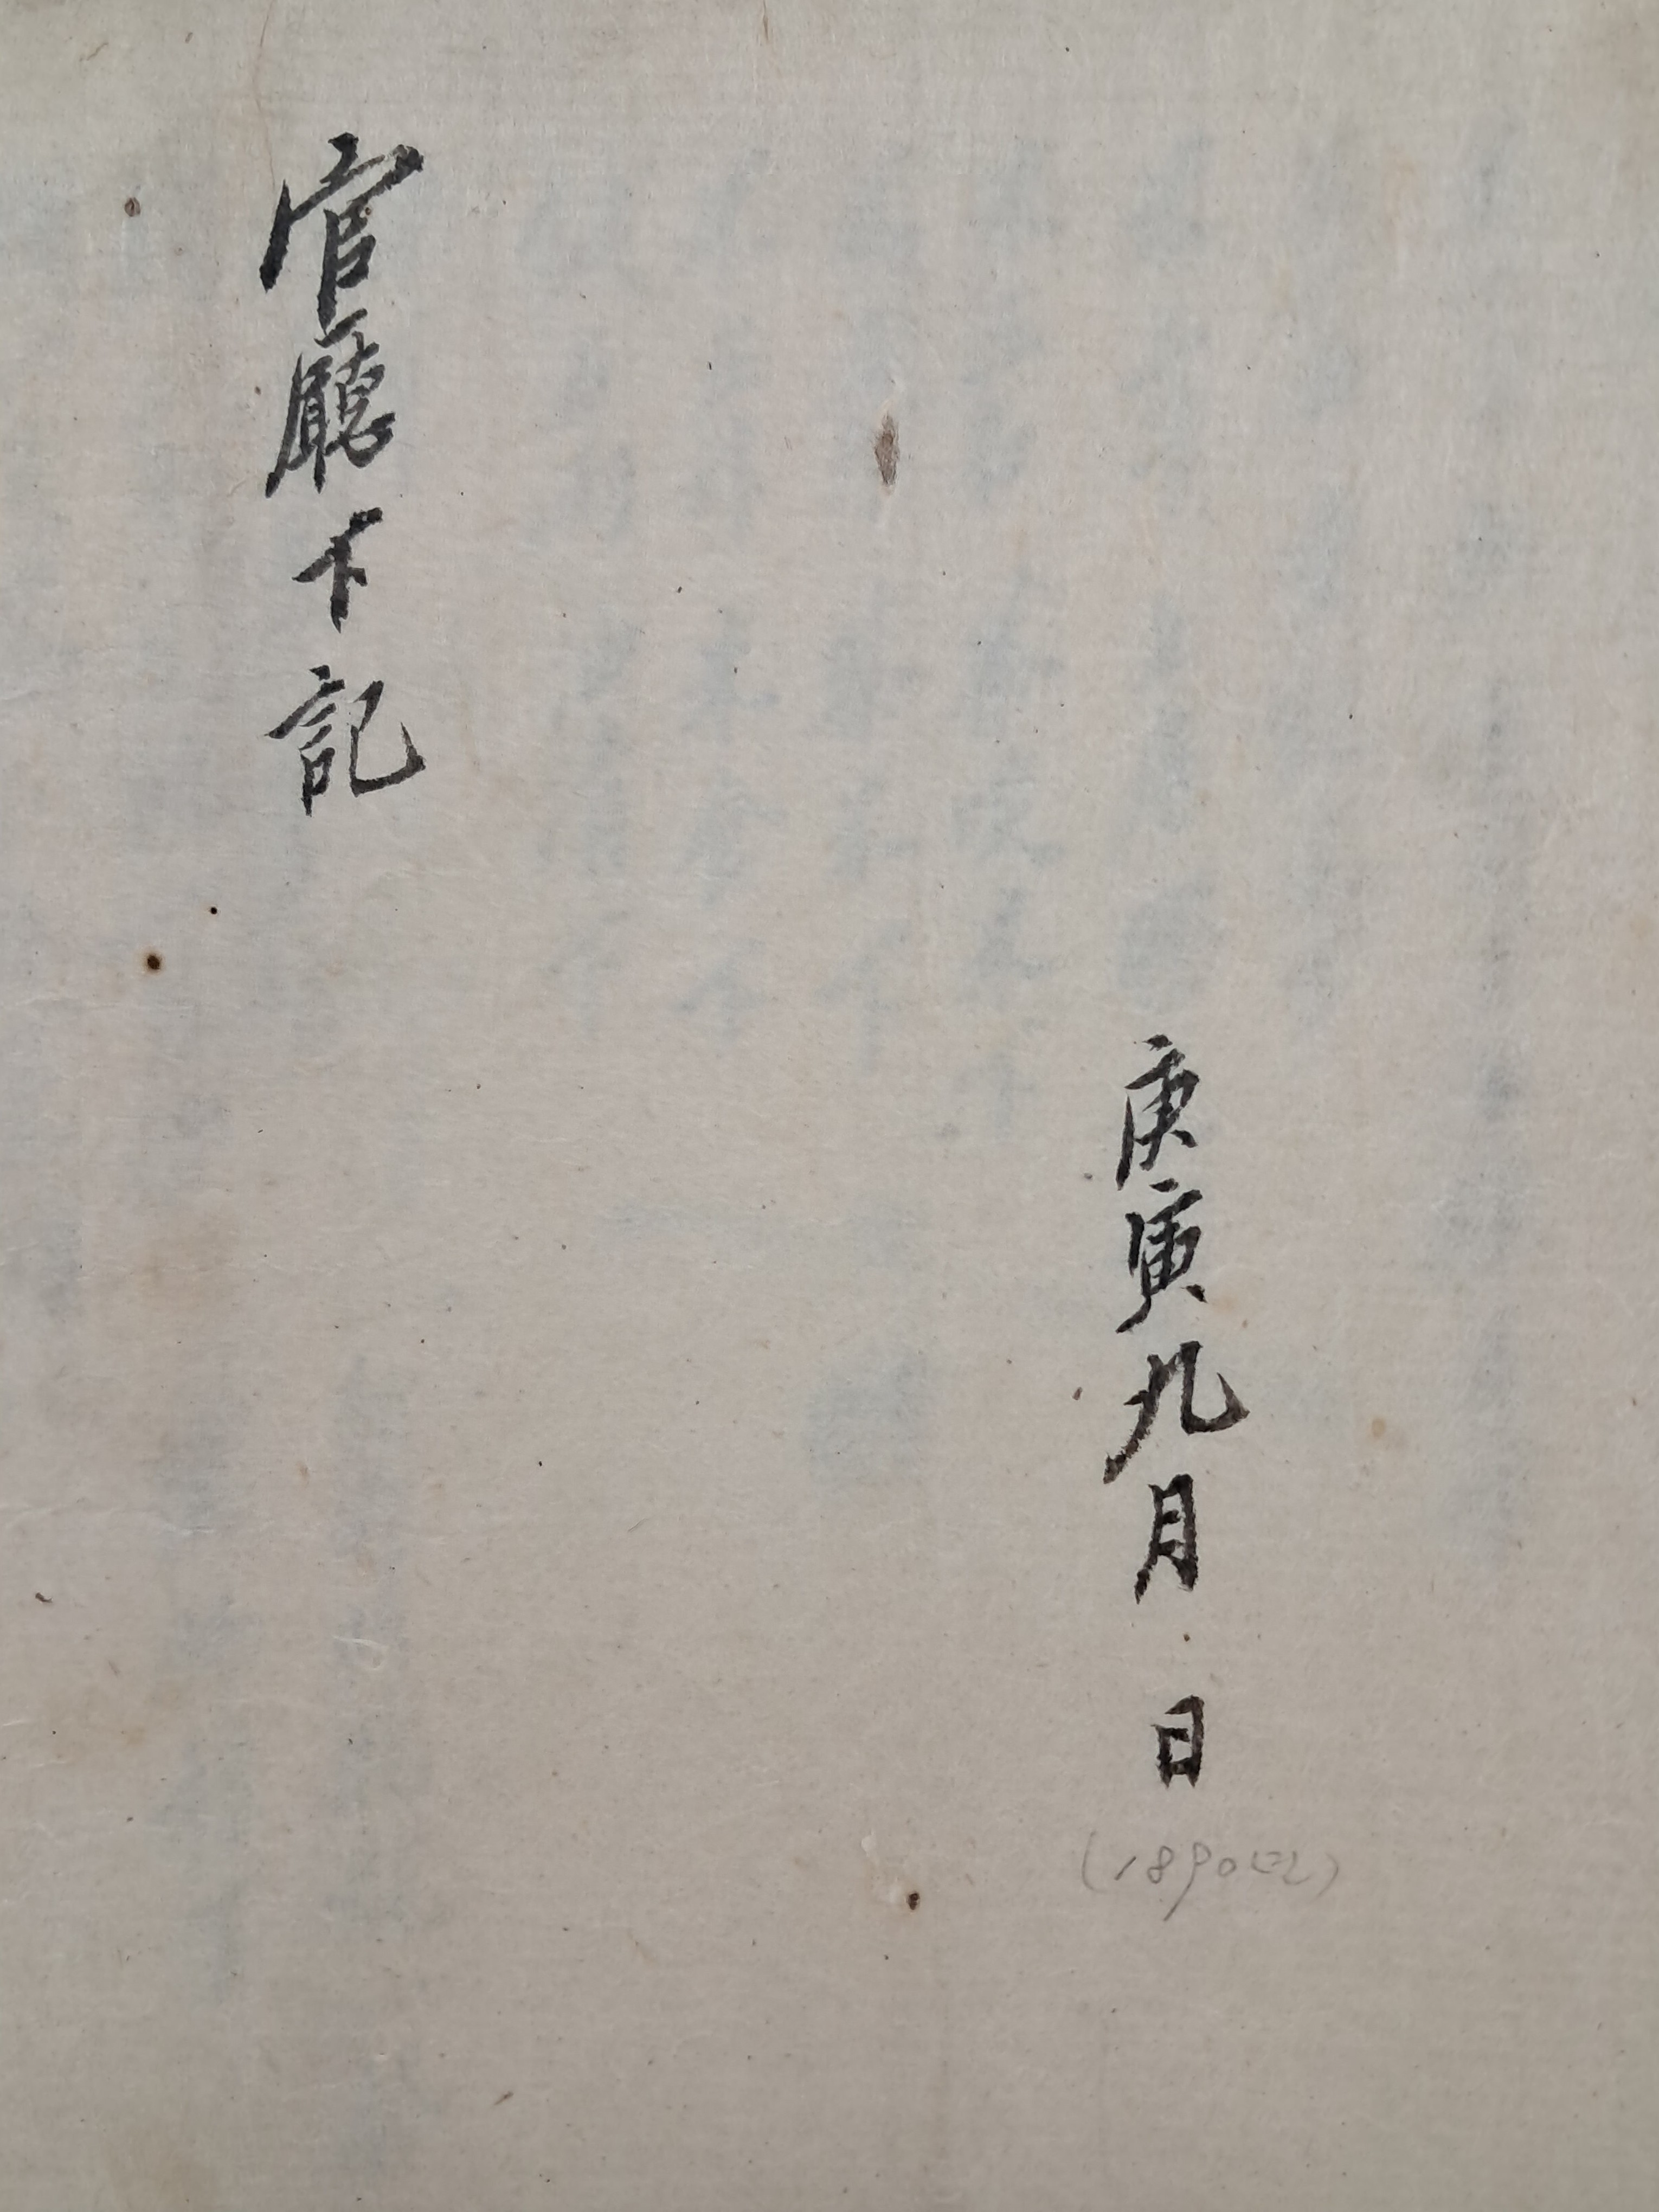 庚寅九月 日
(1890년)
官廳下記